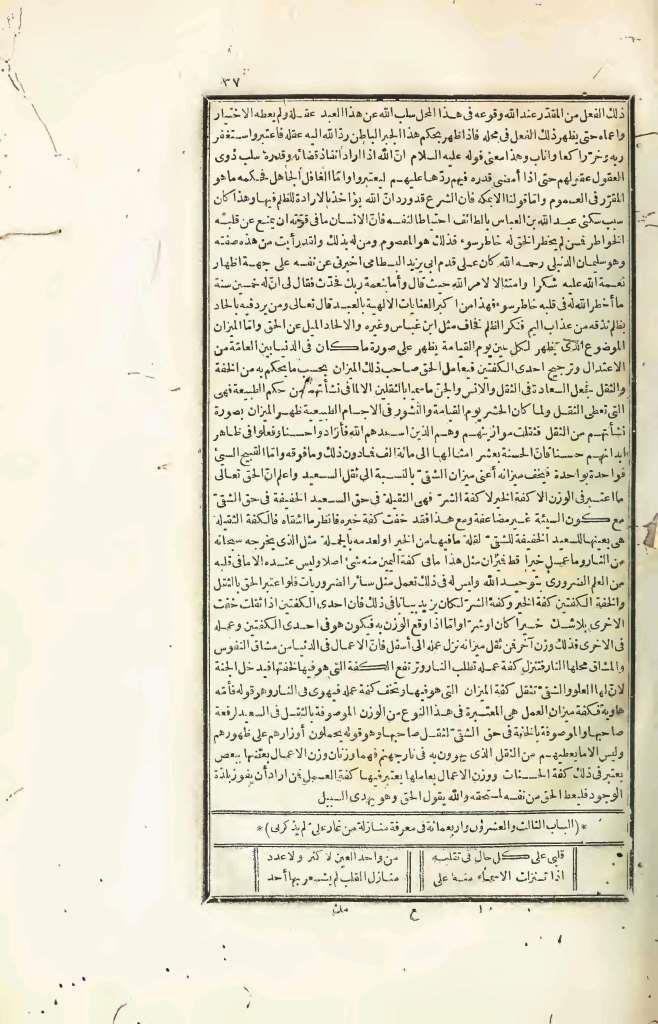 ٣٧
ذلك الفعل من المقدر عند الله وقوعه فى هذا المحل سلب الله عن هذا العبد عقله ولم يعطه الاختيار
واعماه حتى يظهر ذلك الفعل فى محله فاذا ظهر بحكم هذا الجبر الباطن ردّ الله اليه عقله فاعتبر واستغفر
ربه وخرّ راكعا وأناب وهذا معنى قوله عليه السلام انّ الله اذا اراد انفاذ قضائه وقدره سلب ذوى
العقول عقولهم حتى اذا أمضى قدره فيهم ردّها عليهم ليعتبروا وامّا الغافل الجاهل فحكمه ما هو
المقرّر فى العموم وامّا قولنا الا بمكة فان الشرع قد ورد انّ الله يؤاخذ بالارادة للظلم فيها وهذا كان
سبب سكنى عبد الله بن العباس بالطائف احتياطا لنفسه فانّ الانسان ما فى قوّته ان يمنع عن قلبه
الخواطر فمن لم يخطر الحق له خاطر سوء فذلك هو المعصوم ومن له بذلك ولقد رأيت من هذه صفته
وهو سليمان الدنبلى رحمه الله كان على قدم ابى يزيد البسطامى اخبرنى عن نفسه على جهة اظهار
نعمة الله عليه شكرا وامتثالا لامر الله حيث قال وأما بنعمة ربك فحدّث فقال لى انّ له خمسين سنة
ما أخطر الله له فى قلبه خاطر سوء فهذا من اكبر العنايات الالهية بالعبد قال تعالى ومن يرد فيه بالحاد
بظلم نذقه من عذاب اليم فنكر الظلم فخاف مثل ابن عباس وغيره والالحاد الميل عن الحق وامّا الميزان
الموضوع الذى يظهر لكل عين يوم القيامة يظهر على صورة ما كان فى الدنيا بين العامّة من
الاعتدال وترجيح احدى الكفتين فيعامل الحق صاحب ذلك الميزان بحسب ما يحكم به من الخفة
والثقل فجعل السعادة فى الثقل والانس والجنّ ما سميا بالثقلين الا لما فى نشأتهما من حكم الطبيعة فهى
التى تعطى الثقل ولما كان الحشر يوم القيامة والنشور فى الاجسام الطبيعية ظهر الميزان بصورة
نشأتهم من الثقل فثقلت موازينهم وهم الذين اسعدهم الله فأرادوا حسنا وفعلوا فى ظاهر
ابدانهم حسنا فانّ الحسنة بعشر امثالها الى مائة الف فما دون ذلك وما فوقه وامّا القبيح السيئ
فواحدة بواحدة فيخف ميزانه أعنى ميزان الشقىّ بالنسبة الى ثقل السعيد واعلم انّ الحق تعالى
ما اعتبر فى الوزن الا كفة الخير لا كفة الشرّ فهى الثقيلة فى حق السعيد الخفيفة فى حق الشقىّ
مع كون السيئة غير مضاعفة ومع هذا فقد خفت كفة خيره فانظر ما اشقاه فالكفة الثقيلة
هى بعينها للسعيد الخفيفة للشقىّ لقلة ما فيها من الخير او لعدمه بالجملة مثل الذى يخرجه سبحانه
من النار وما عمل خيرا قط فميزان مثل هذا ما فى كفة اليمين منه شئ اصلا وليس عنده الا ما فى قلبه
من العلم الضرورى بتوحيد الله وليس له فى ذلك تعمل مثل سائر الضروريات فلو اعتبر الحق بالثقل
والخفة الكفتين كفة الخير وكفة الشرّ لكان يزيد بيانا فى ذلك فان احدى الكفتين اذا ثقلت خفت
الاخرى بلا شك خيرا كان او شرّا وامّا اذا وقع الوزن به فيكون هو فى احدى الكفتين وعمله
فى الاخرى فذلك وزن آخر فمن ثقل ميزانه نزل عمله الى أسفل فانّ الاعمال فى الدنيا من مشاق النفوس
والمشاق محلها النار فتنزل كفة عمله تطلب النار وترتفع الكفة التى هو فيها لخفتها فيدخل الجنة
لانّ لها العلو والشقىّ تثقل كفة الميزان التى هو فيها وتخف كفة عمله فيهوى فى النار وهو قوله فأمّه
هاوية فكفة ميزان العمل هى المعتبرة فى هذا النوع من الوزن الموصوفة بالثقل فى السعيد لرفعة
صاحبها والموصوفة بالخفة فى حق الشقىّ لثقل صاحبها وهو قوله يحملون أوزارهم على ظهورهم
وليس الا ما يعطيهم من الثقل الذى يهوون به فى نار جهنم فهما وزنان وزن الاعمال بعضها ببعض
يعتبر فى ذلك كفة الحسنات ووزن الاعمال بعاملها يعتبر فيها كفة العمل فمن اراد أن يفوز بلذة
الوجود فليعط الحق من نفسه لمستحقه والله يقول الحق وهو يهدى السبيل
*(الباب الثالث والعشرون واربعمائة فى معرفة منازلة من غار علىّ لم يذكرنى)*
قلبى على كل حال فى تقلبه من واحد العين لا كثر ولا عدد
اذا تنزلت الاسماء منه على منازل القلب لم يشعر بها أحد
١٠ ع مك